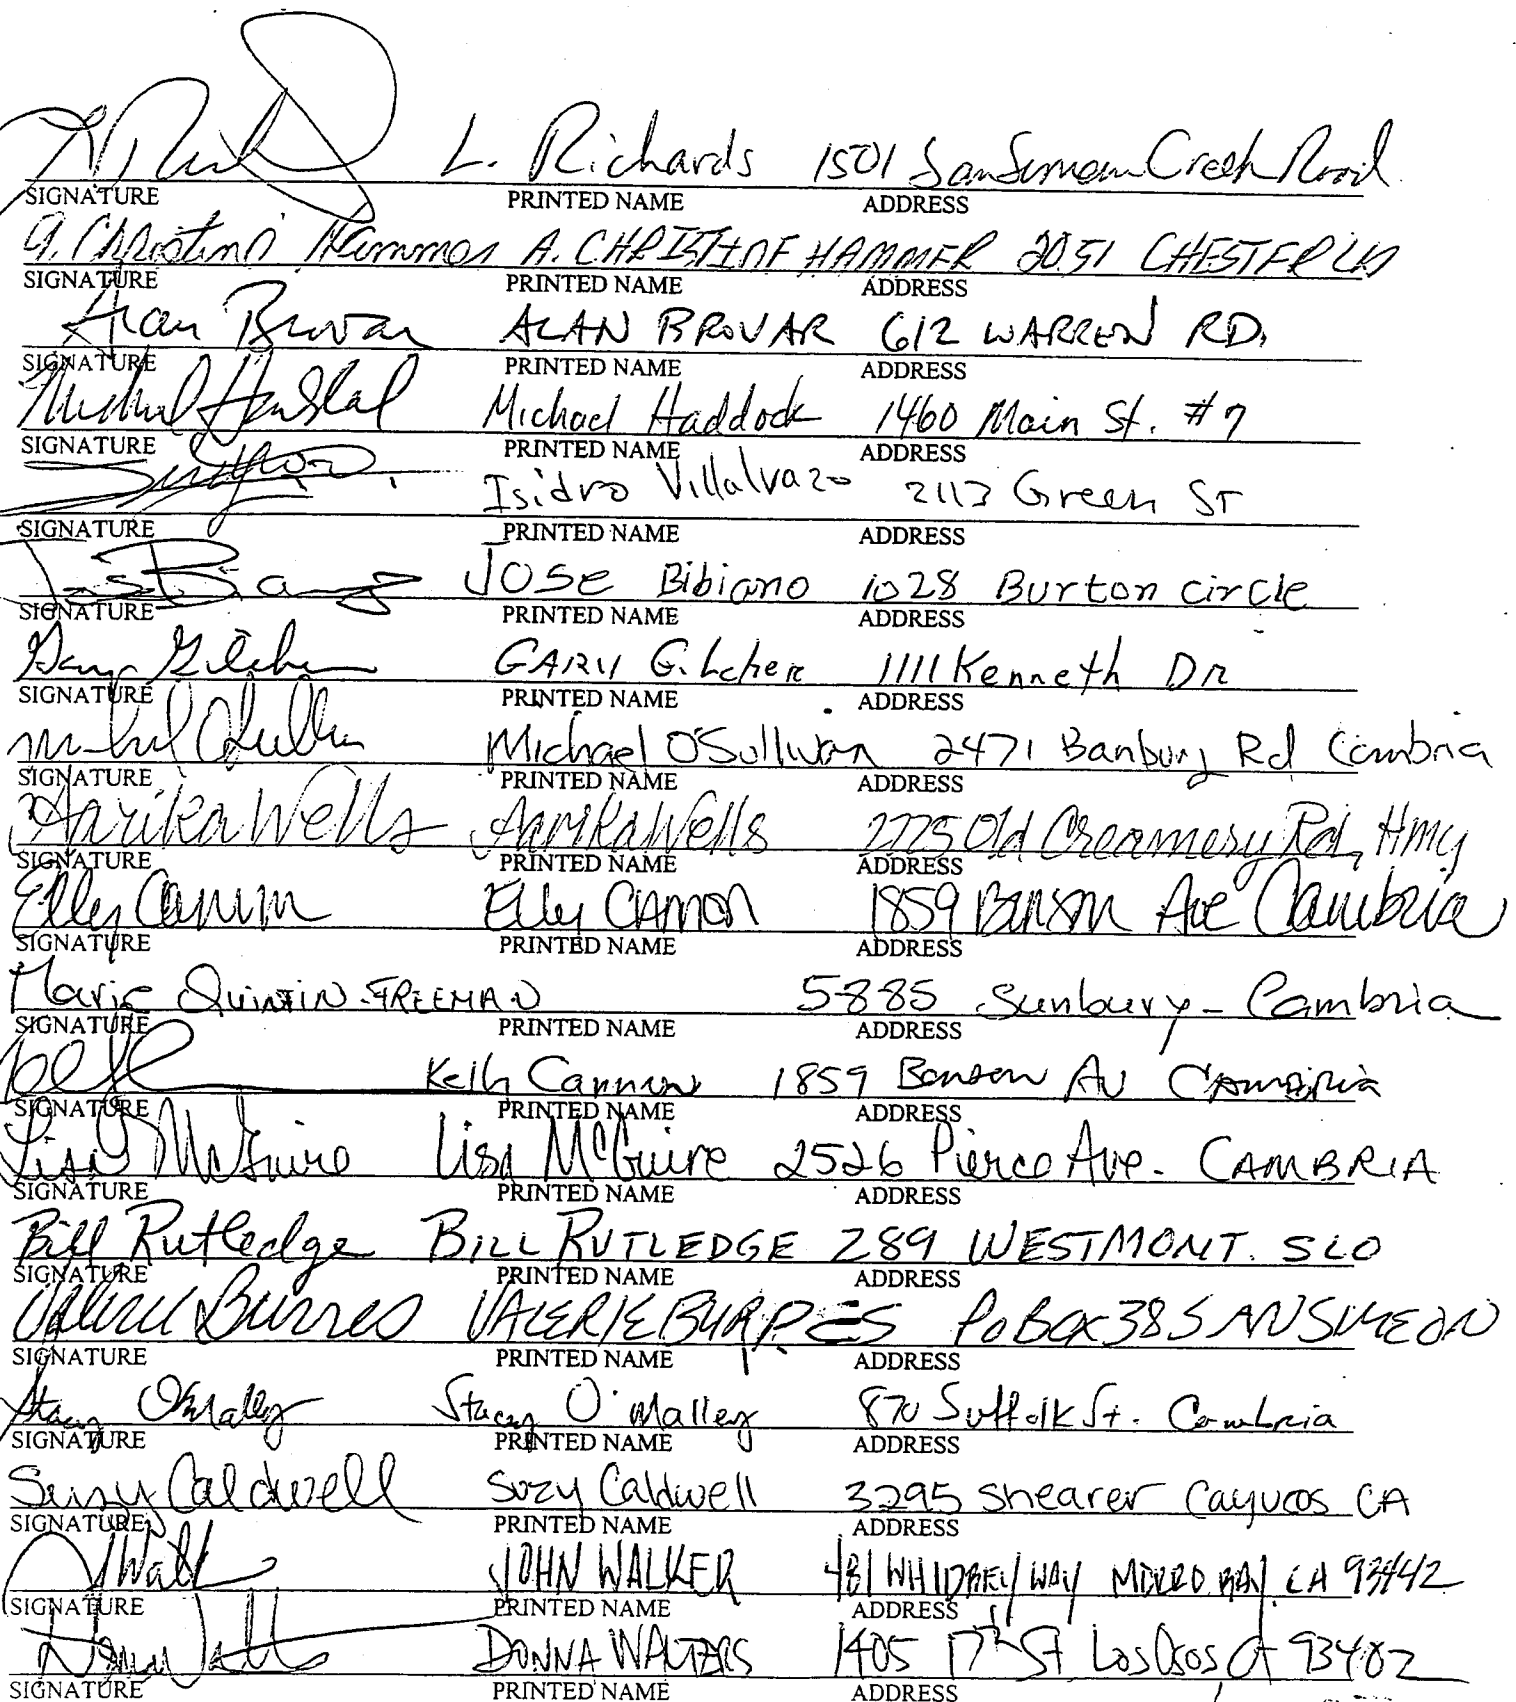 L. Richards 1501 San Simeon Creek Road
SIGNATURE PRINTED NAME ADDRESS
A. Christine Hammer A. CHRISTINE HAMMER 2051 CHESTER LN
SIGNATURE PRINTED NAME ADDRESS
Alan Brovar ALAN BROVAR 612 WARREN RD.
SIGNATURE PRINTED NAME ADDRESS
Michael Haddock 1460 Main St. #7
SIGNATURE PRINTED NAME ADDRESS
Isidro Villalvazo 2113 Green ST
SIGNATURE PRINTED NAME ADDRESS
JOSE Bibiano 1028 Burton circle
SIGNATURE PRINTED NAME ADDRESS
Gary Gilcher GARY Gilcher 1111 Kenneth DR
SIGNATURE PRINTED NAME ADDRESS
Michael O'Sullivan 2471 Banbury Rd Cambria
SIGNATURE PRINTED NAME ADDRESS
Aarika Wells Aarika Wells 2725 Old Creamery Rd, Hmy
SIGNATURE PRINTED NAME ADDRESS
Elly Elly 1859 Benson Ave Cambria
SIGNATURE PRINTED NAME ADDRESS
Marie QUINTIN-FREEMAN 5885 Sunbury - Cambria
SIGNATURE PRINTED NAME ADDRESS
Kelly Cannon 1859 Benson AV CAMBRIA
SIGNATURE PRINTED NAME ADDRESS
Lisa McGuire Lisa McGuire 2526 Pierce Ave. CAMBRIA
SIGNATURE PRINTED NAME ADDRESS
Bill Rutledge BILL RUTLEDGE 289 WESTMONT. SLO
SIGNATURE PRINTED NAME ADDRESS
Valerie Burres VALERIE BURRES PO BOX 38 SAN SIMEON
SIGNATURE PRINTED NAME ADDRESS
Stacey O'Malley Stacey O'Malley 870 Suffolk St. Cambria
SIGNATURE PRINTED NAME ADDRESS
Suzy Caldwell Suzy Caldwell 3295 Shearer Cayucos CA
SIGNATURE PRINTED NAME ADDRESS
JOHN WALKER 481 WHIDBEY WAY MORRO BAY CA 93442
SIGNATURE PRINTED NAME ADDRESS
DONNA WALTERS 1405 17th St Los Osos CA 93402
SIGNATURE PRINTED NAME ADDRESS